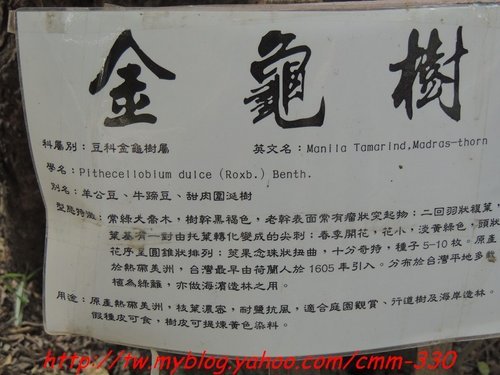 金龜樹
科屬別：豆科金龜樹屬 英文名：Manila Tamarind,Madras-thorn
學名：Pithecellobium dulce (Roxb.) Benth.
別名：羊公豆、牛蹄豆、甜肉圍涎樹
型態特徵：常綠大喬木，樹幹黑褐色，老幹表面常有瘤狀突起物；二回羽狀複葉，
葉基有一對由托葉轉化變成的尖刺；春季開花，花小，淡黃綠色，頭狀
花序呈圓錐狀排列；莢果念珠狀扭曲，十分奇特，種子5-10枚。原產
於熱帶美洲，台灣最早由荷蘭人於1605年引入。分布於台灣平地多
植為綠籬，亦做海濱造林之用。
用途：原產熱帶美洲，枝葉濃密，耐鹽抗風，適合庭園觀賞、行道樹及海岸造林。
假種皮可食，樹皮可提煉黃色染料。
http://tw.myblog.yahoo.com/cmm-330